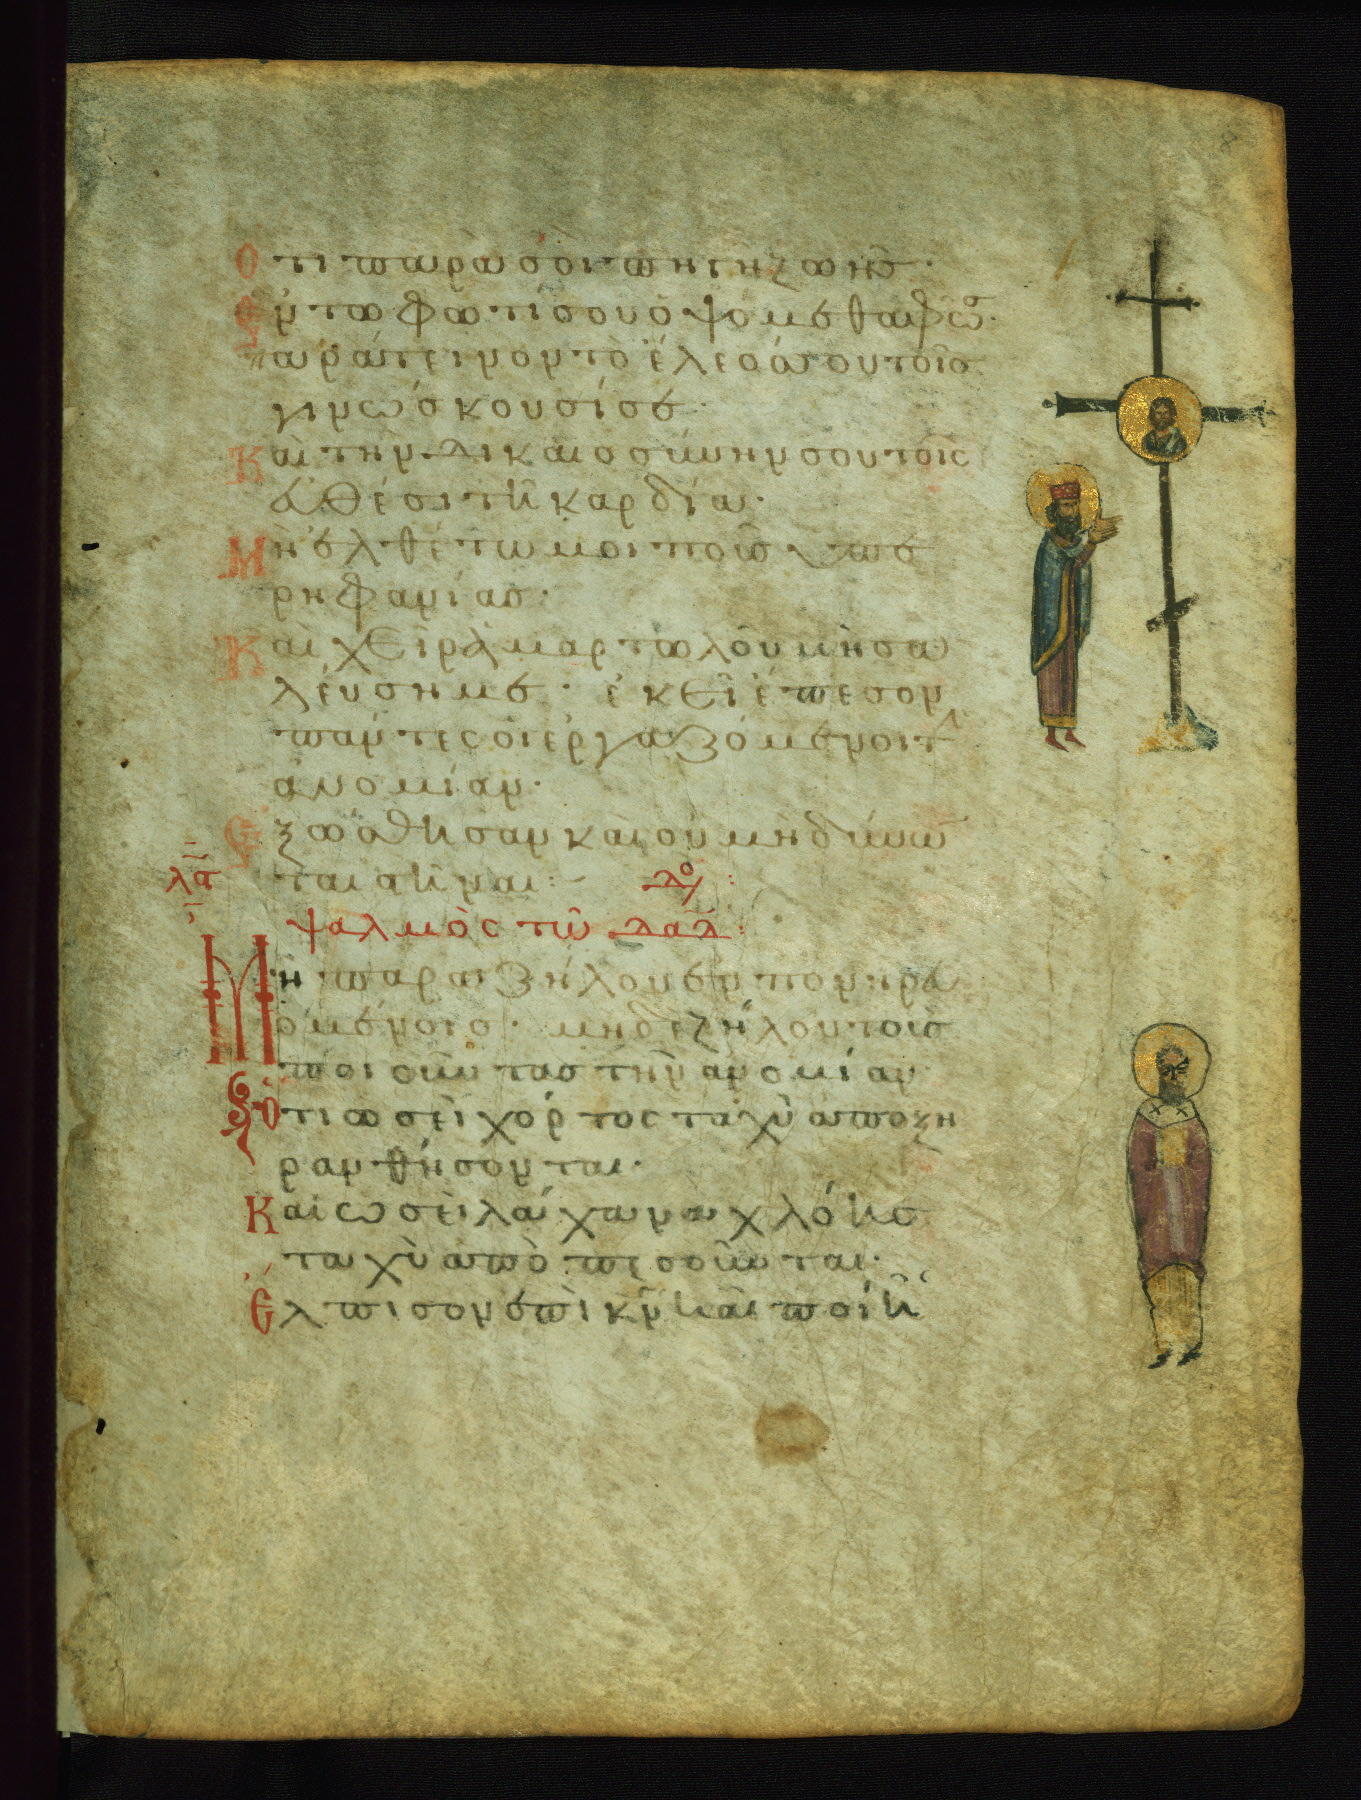 Ὅτι παρὰ σοὶ πηγὴ ζωῆς·
Ἐν τῷ φωτί σου ὀψόμεθα φῶς·
Παράτεινον τὸ ἔλεός σου τοῖς
γινώσκουσί σε·
Καὶ τὴν δικαιοσύνην σου τοῖς
εὐθέσι τῇ καρδίᾳ·
Μὴ ἐλθέτω μοι ποὺς ὑπε
ρηφανίας·
Καὶ χεὶρ ἁμαρτωλοῦ μὴ σα
λεύσῃ με· ἐκεῖ ἔπεσον
πάντες οἱ ἐργαζόμενοι τ
ἀνομίαν·
Ἐξώσθησαν καὶ οὐ μὴ δύνων
ται στῆναι:
λς
ψαλμὸς τῶ δαδ:
Μὴ παραζήλου ἐν πονηρευ
ομένοις· μηδὲ ζήλου τοὺς
ποιοῦντας τὴν ἀνομίαν·
Ὅτι ὡσεὶ χόρτος ταχὺ ἀποξη
ρανθήσονται·
Καὶ ὡσεὶ λάχανα χλόης
ταχὺ ἀποπεσοῦνται·
Ἔλπισον ἐπὶ κν καὶ ποίει